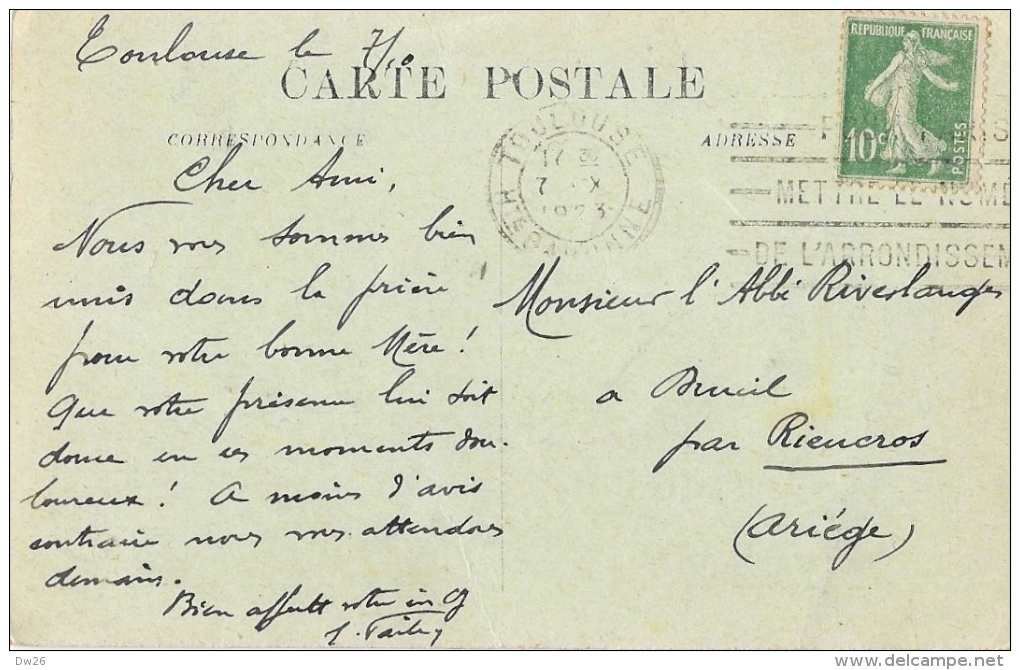 Toulouse le 7/10
CARTE POSTALE
CORRESPONDANCE
ADRESSE
REPUBLIQUE FRANÇAISE
10c
POSTES
TOULOUSE
17 30
7 - X
1923
Hte GARONNE
METTRE LE NUMÉ
DE L'ARRONDISSEM
Cher Ami,
Nous vous sommes bien
unis dans la prière
pour votre bonne Mère !
Que votre présence lui soit
douce en ces moments dou-
loureux ! A moins d'avis
contraire nous vous attendons
demain.
Bien affectt votre in
Monsieur l'Abbé Riverlanges
a
par Rieucros
(Ariége)
Dw26
http://www.delcampe.net